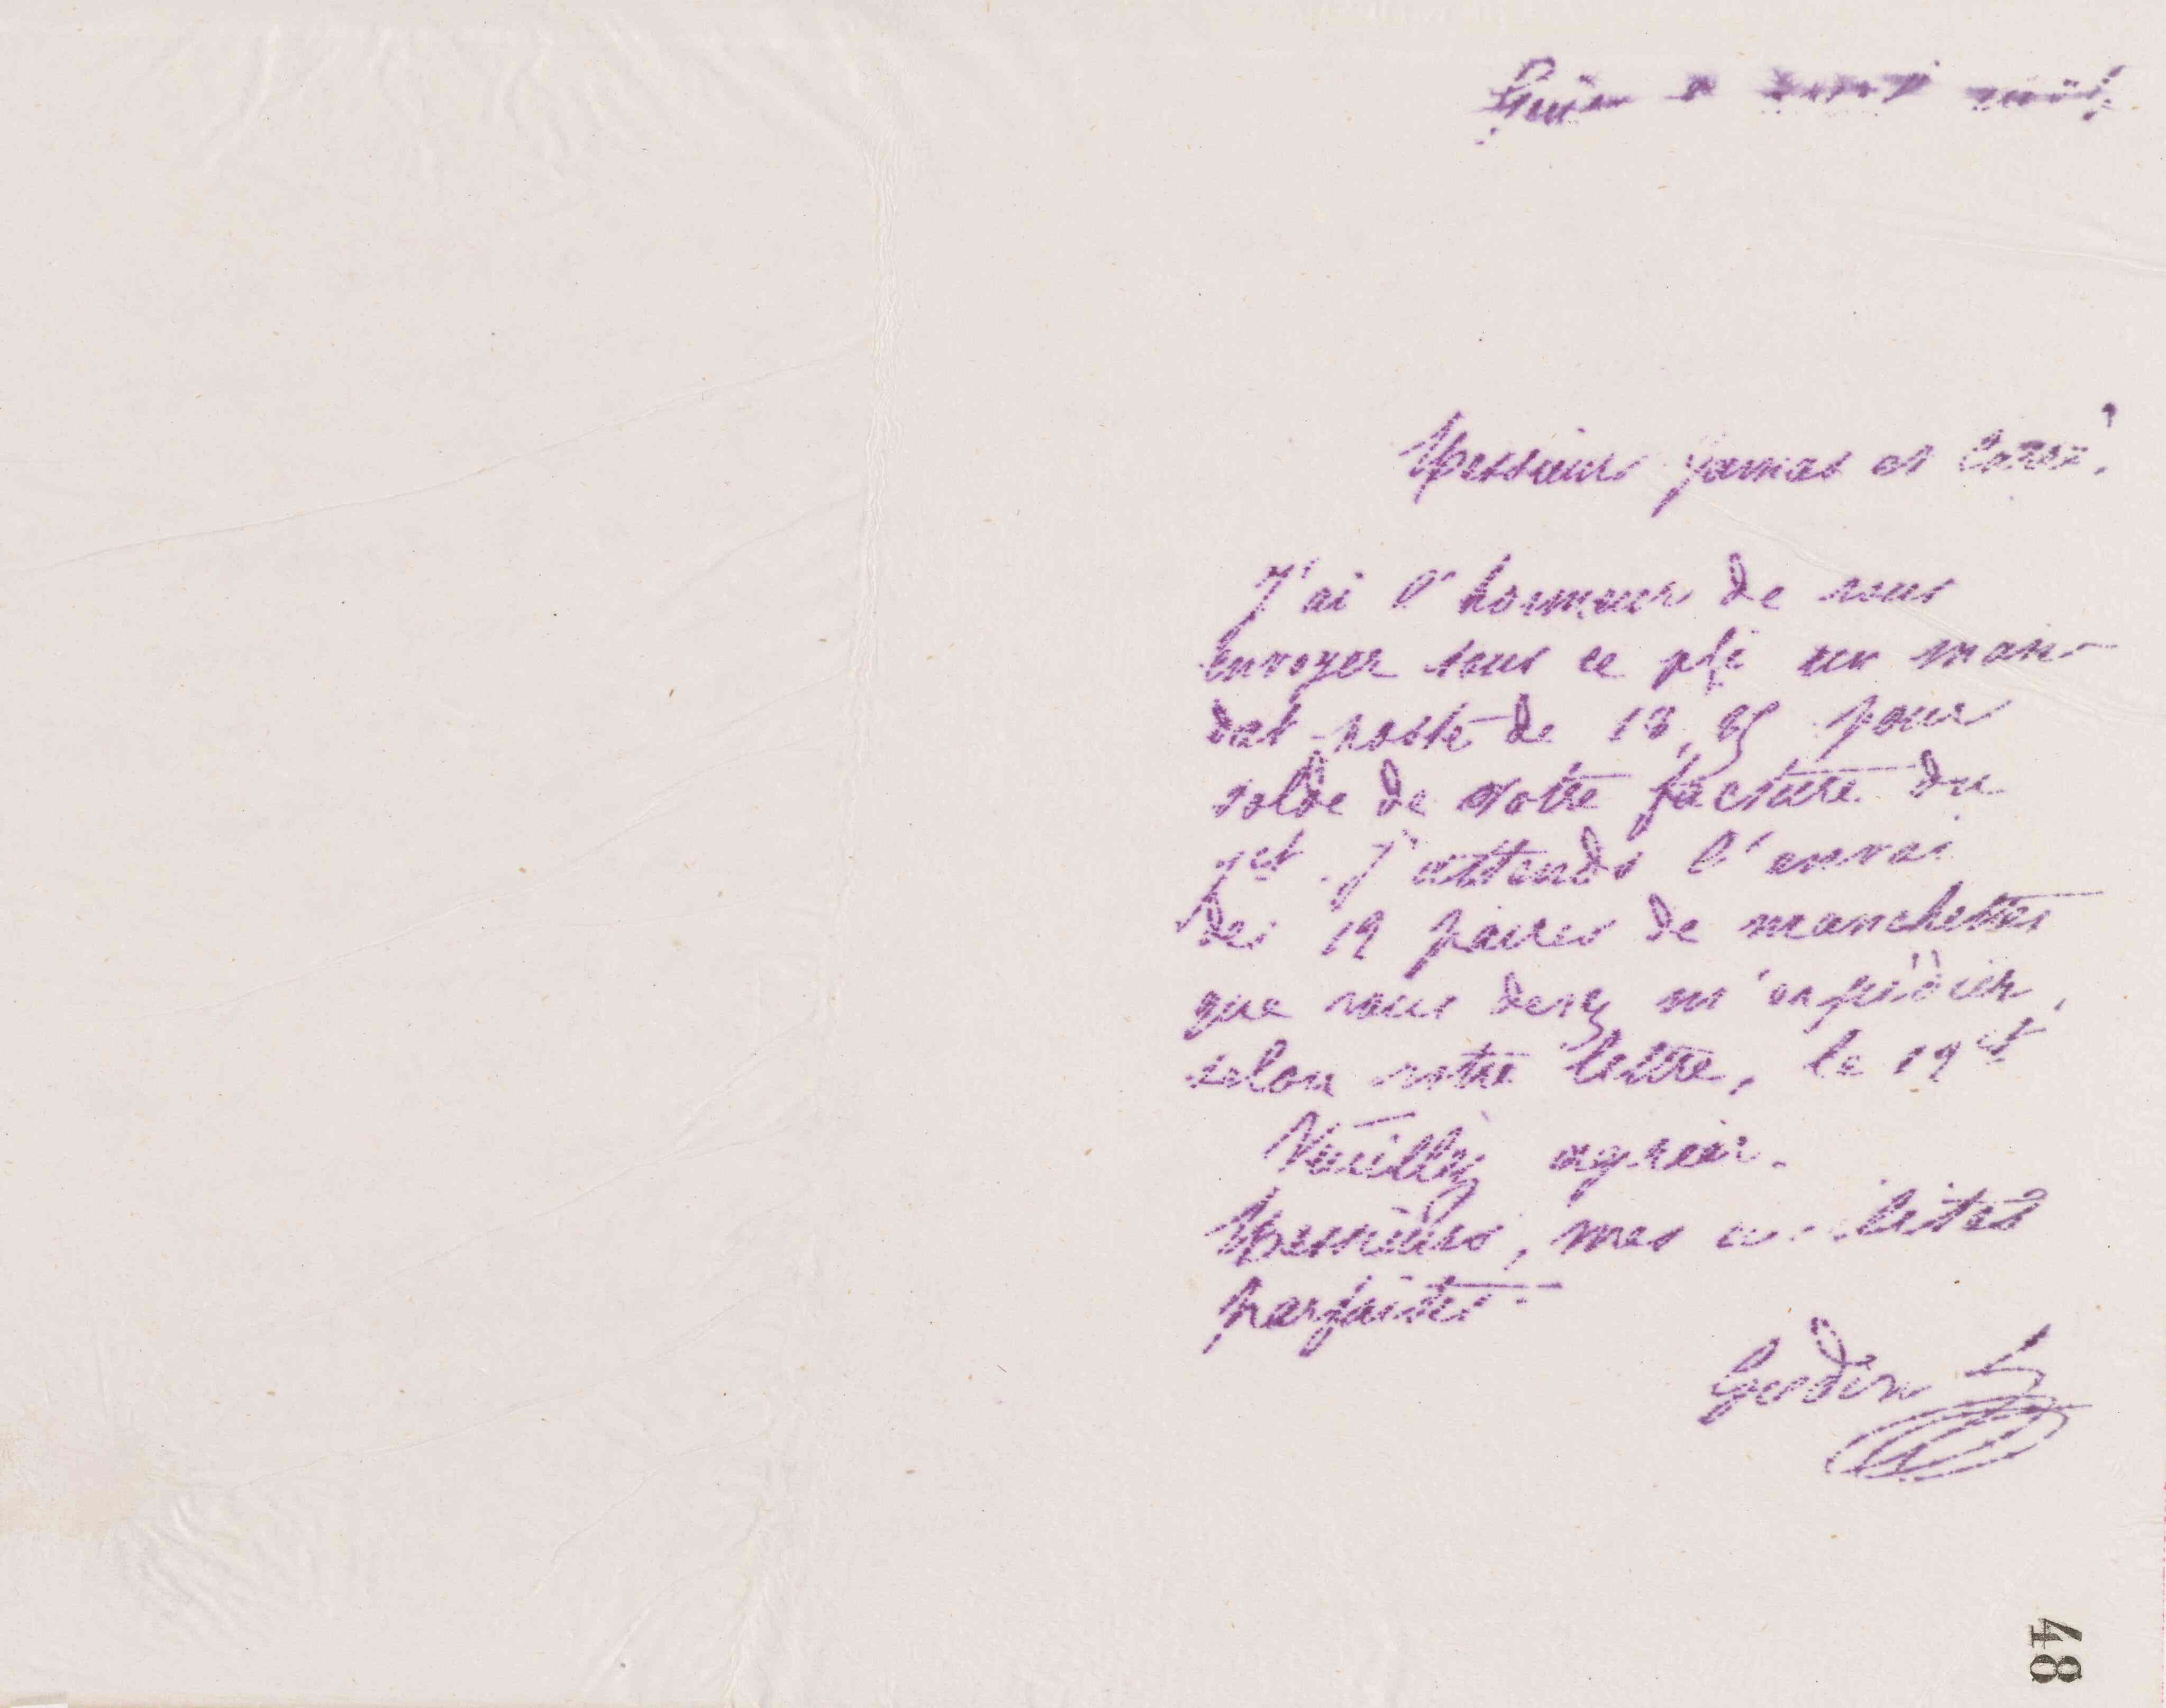 Guise
Messieurs Jamas et
J'ai l'honneur de vous
envoyer sous ce pli un man-
dat-poste de 18,85 pour
solde de votre facture du
7 ct. J'attends l'envoi
des 19 paires de manchettes
que vous devez m'expédier,
selon votre lettre, le 19 ct
Veuillez agréer,
Messieurs, mes civilités
parfaites
Godin
48